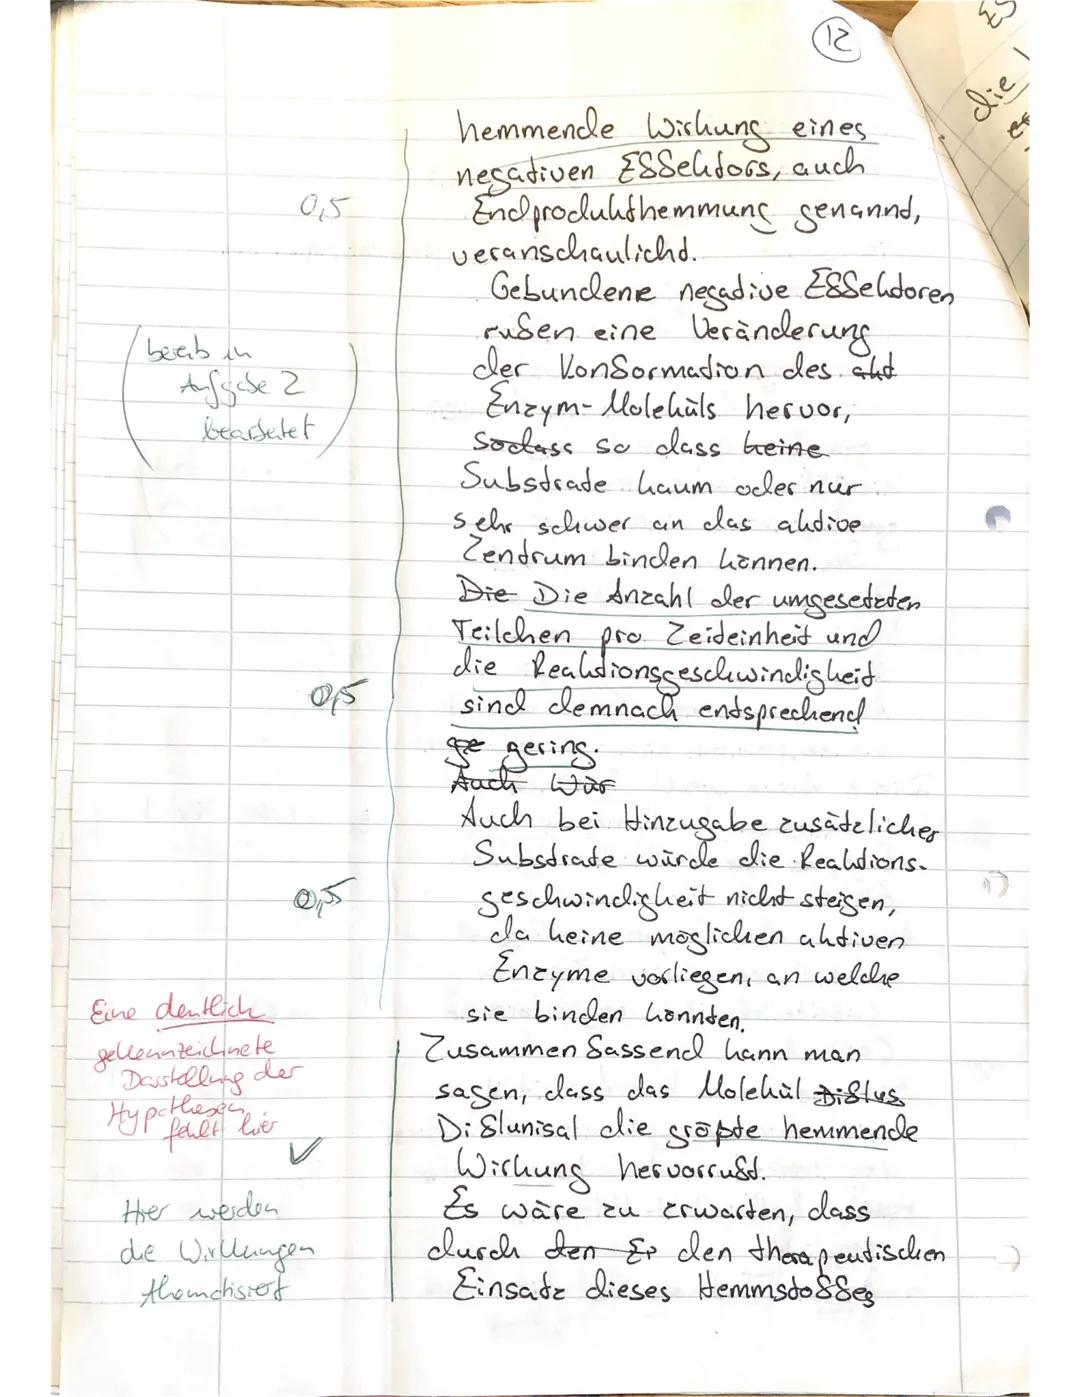 12
hemmende Wirkung eines
negativen Effektors, auch
0,5
Endprodukthemmung genannt,
veranschaulicht.
Gebundene negative Effektoren
rufen eine Veränderung
der Konformation des akt
Enzym-Moleküls hervor,
(bereits in
Aufgabe 2
bearbeitet)
Sodass so dass keine
Substrate kaum oder nur
sehr schwer an das aktive
Zentrum binden können.
Die Die Anzahl der umgesetzten
Teilchen pro Zeiteinheit und
die Reaktionsgeschwindigkeit
0,5
sind demnach entsprechend
ge gering.
Auch Wär
Auch bei Hinzugabe zusätzlicher
Substrate würde die Reaktions-
0,5
geschwindigkeit nicht steigen,
da keine möglichen aktiven
Enzyme vorliegen, an welche
sie binden könnten.
Eine deutlich
gekennzeichnete
Darstellung der
Hypothesen
fehlt hier
✓
Zusammenfassend kann man
sagen, dass das Molekül Diflus
Diflunisal die größte hemmende
Wirkung hervorruft.
Hier werden
die Wirkungen
thematisiert
Es wäre zu erwarten, dass
durch den Er den therapeutischen
Einsatz dieses Hemmstoffes
die